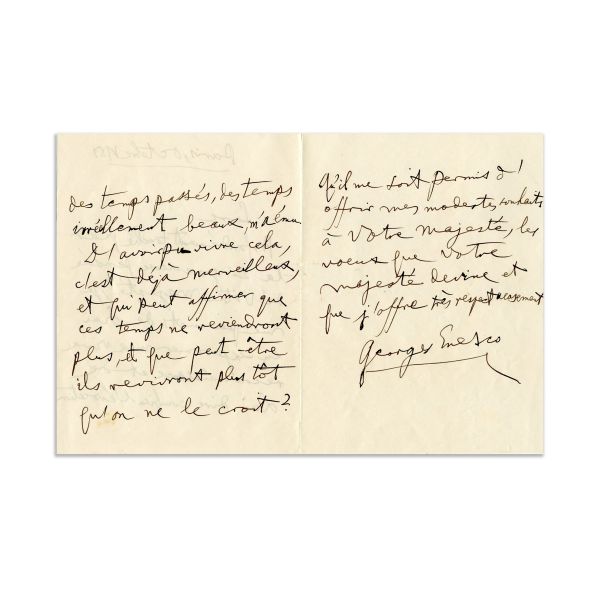 des temps passés, des temps
irréellement beaux, m'a ému.
D'avoir pu vivre cela,
c'est déjà merveilleux,
et qui peut affirmer que
ces temps ne reviendront
plus, et que peut-être
ils revivront plus tôt
qu'on ne le croit?
Qu'il me soit permis d'
offrir mes modestes souhaits
à Votre Majesté, les
voeux que Votre
Majesté devine et
que j'offre très respectueusement
Georges Enesco